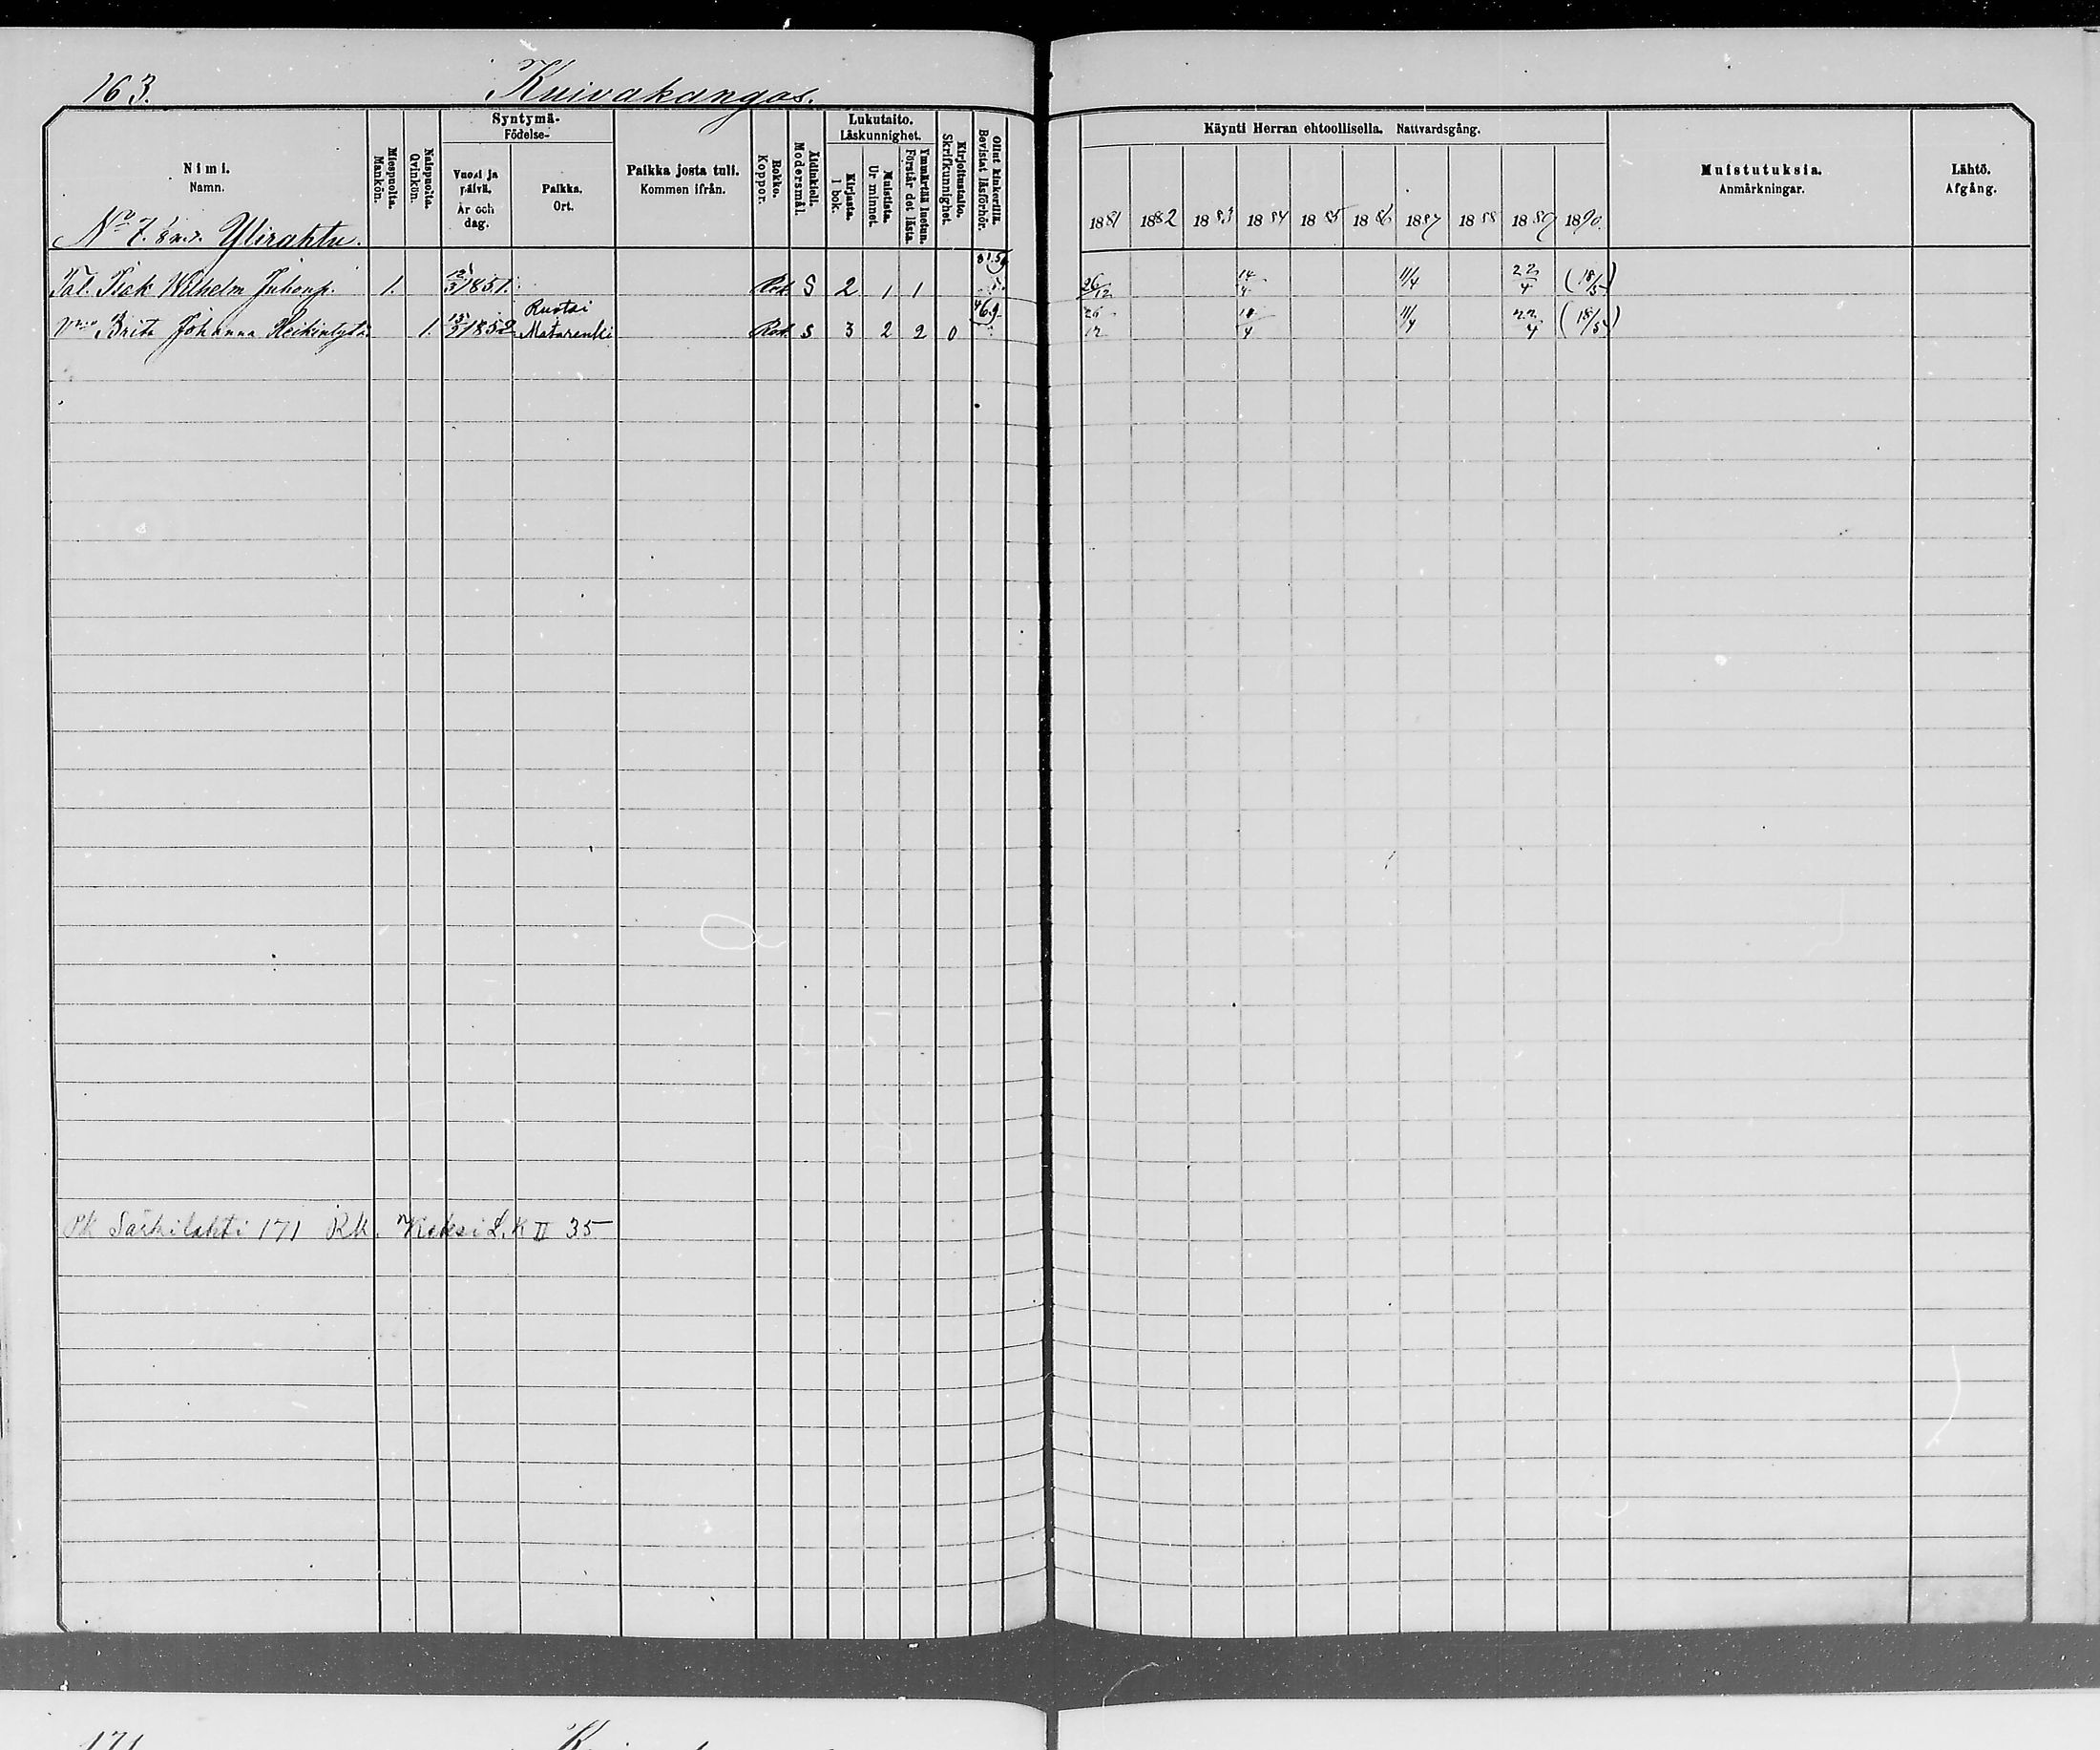 163. Kuivakangas.
Nimi.
Namn.
Miespuolta.
Mankön.
Naispuolta.
Qvinkön.
Syntymä-
Födelse-
Vuosi ja päivä.
År och dag.
Paikka.
Ort.
Paikka josta tuli.
Kommen ifrån.
Rokko.
Koppor.
Äidinkieli.
Modersmål.
Lukutaito.
Läskunnighet.
Kirjasta.
I bok.
Muistista.
Ur minnet.
Ymmärtää luetun.
Förstår det lästa.
Kirjoitustaito.
Skrifkunnighet.
Ollut kinkerillä.
Bevistat läsförhör.
Käynti Herran ehtoollisella. Nattvardsgång.
1881 1882 1883 1884 1885 1886 1887 1888 1889 1890.
Muistutuksia.
Anmärkningar.
Lähtö.
Afgång.
No 7. Ylirahtu.
Tal. Isak Wilhelm Juhonp. 1. 12/3 1851. Rok S 2 1 1 26/12 14/4 11/4 22/4 (18/5)
Ruotsi
Vmo Brita Johanna Heikintytär 1. 15/3 1852 Matarenki Rok S 3 2 2 0 26/12 11/4 22/4 (18/5)
Pk Särkilahti 171 Rk. Keksi L.K II 35
171